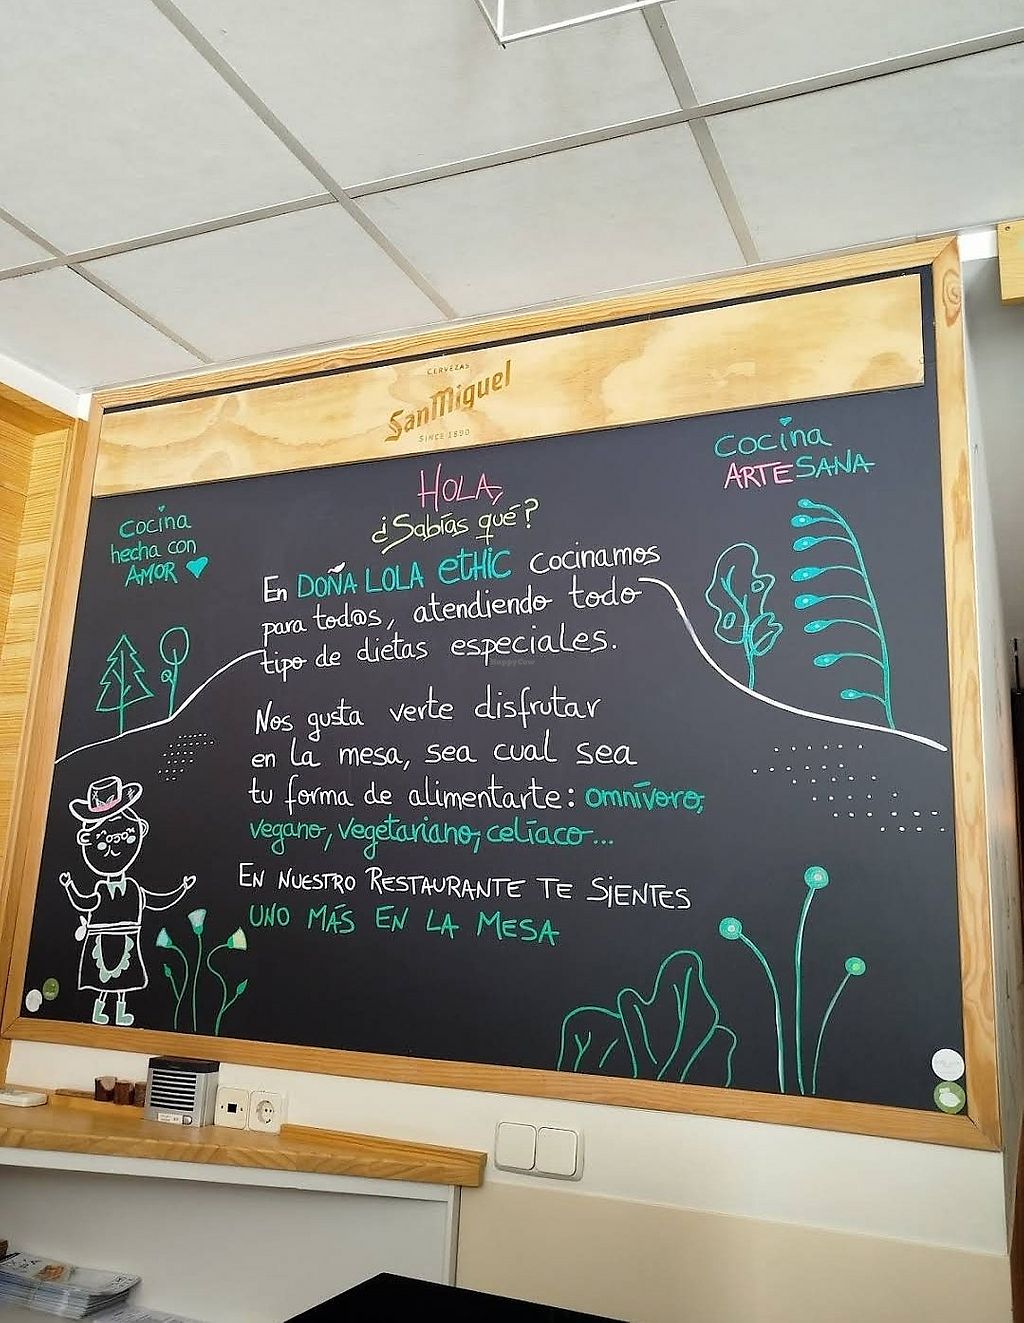 CERVEZAS
SanMiguel
SINCE 1890
Cocina
ARTESANA
HOLA,
¿Sabías qué?
Cocina
hecha con
AMOR
En DOÑA LOLA ethic cocinamos
para tod@s, atendiendo todo
tipo de dietas especiales.
HappyCow
Nos gusta verte disfrutar
en la mesa, sea cual sea
tu forma de alimentarte: omnívoro,
vegano, vegetariano, celíaco...
EN NUESTRO RESTAURANTE TE SIENTES
UNO MÁS EN LA MESA